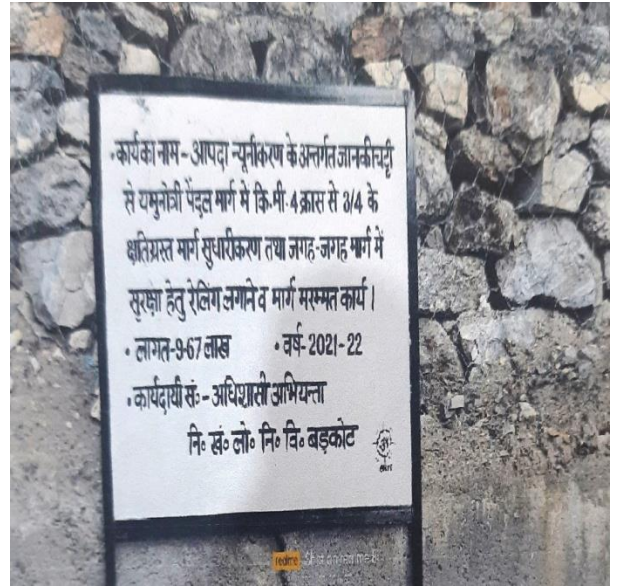 • कार्य का नाम - आपदा न्यूनीकरण के अन्तर्गत जानकीचट्टी
से यमुनोत्री पैदल मार्ग में कि.मी. 4 क्रास से 3/4 के
क्षतिग्रस्त मार्ग सुधारीकरण तथा जगह-जगह मार्ग में
सुरक्षा हेतु रेलिंग लगाने व मार्ग मरम्मत कार्य।
• लागत-9.67 लाख • वर्ष-2021-22
• कार्यदायी सं॰-अधिशासी अभियन्ता
नि॰ खं॰ लो॰ नि॰ वि॰ बड़कोट
realme Shot on realme